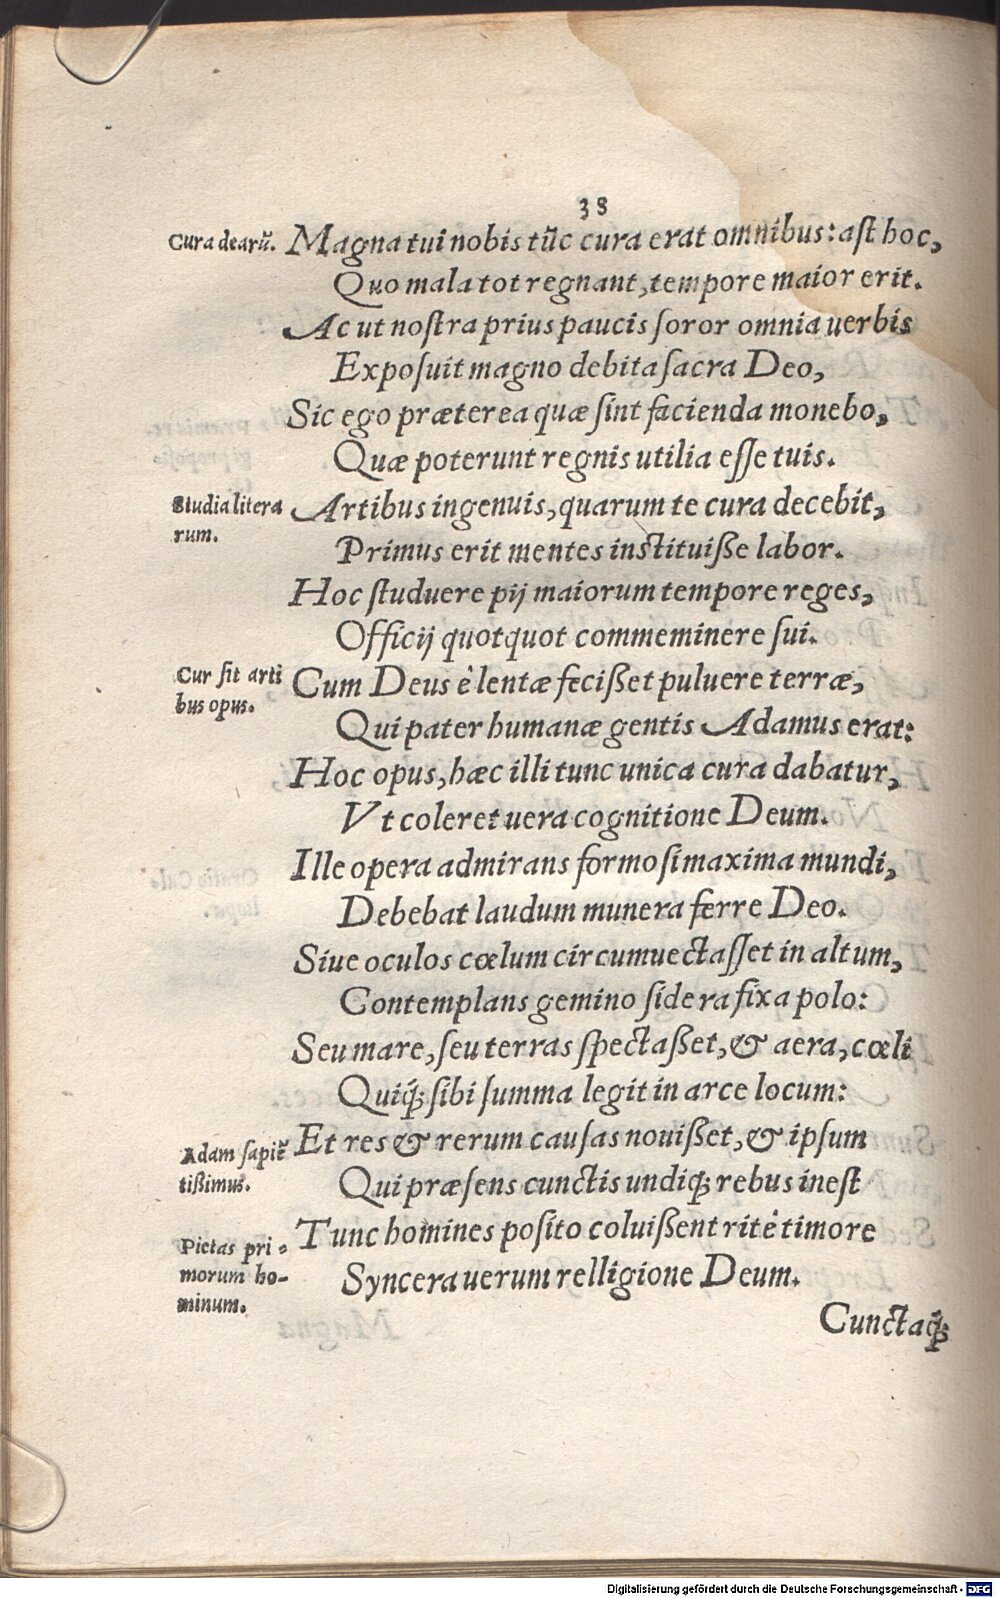 38
Cura dearū.
Magna tui nobis tūc cura erat omnibus: ast hoc,
Quo mala tot regnant, tempore maior erit.
Ac ut nostra prius paucis soror omnia uerbis
Exposuit magno debita sacra Deo,
Sic ego præterea quæ sint facienda monebo,
Quæ poterunt regnis utilia esse tuis.
Studia litera
rum.
Artibus ingenuis, quarum te cura decebit,
Primus erit mentes instituiße labor.
Hoc studuere pij maiorum tempore reges,
Officij quotquot commeminere sui.
Cur sit arti
bus opus.
Cum Deus è lentæ fecißet puluere terræ,
Qui pater humanæ gentis Adamus erat:
Hoc opus, hæc illi tunc unica cura dabatur,
Vt coleret uera cognitione Deum.
Ille opera admirans formosi maxima mundi,
Debebat laudum munera ferre Deo.
Siue oculos cœlum circumuectasset in altum,
Contemplans gemino sidera fixa polo:
Seu mare, seu terras spectaßet, & aera, cœli
Quiq́; sibi summa legit in arce locum:
Adam sapiē
tißimus.
Et res & rerum causas nouißet, & ipsum
Qui præsens cunctis undiq́; rebus inest
Pietas pri-
morum ho-
minum.
Tunc homines posito coluißent ritè timore
Syncera uerum relligione Deum.
Cunctaq́;
Digitalisierung gefördert durch die Deutsche Forschungsgemeinschaft - DFG